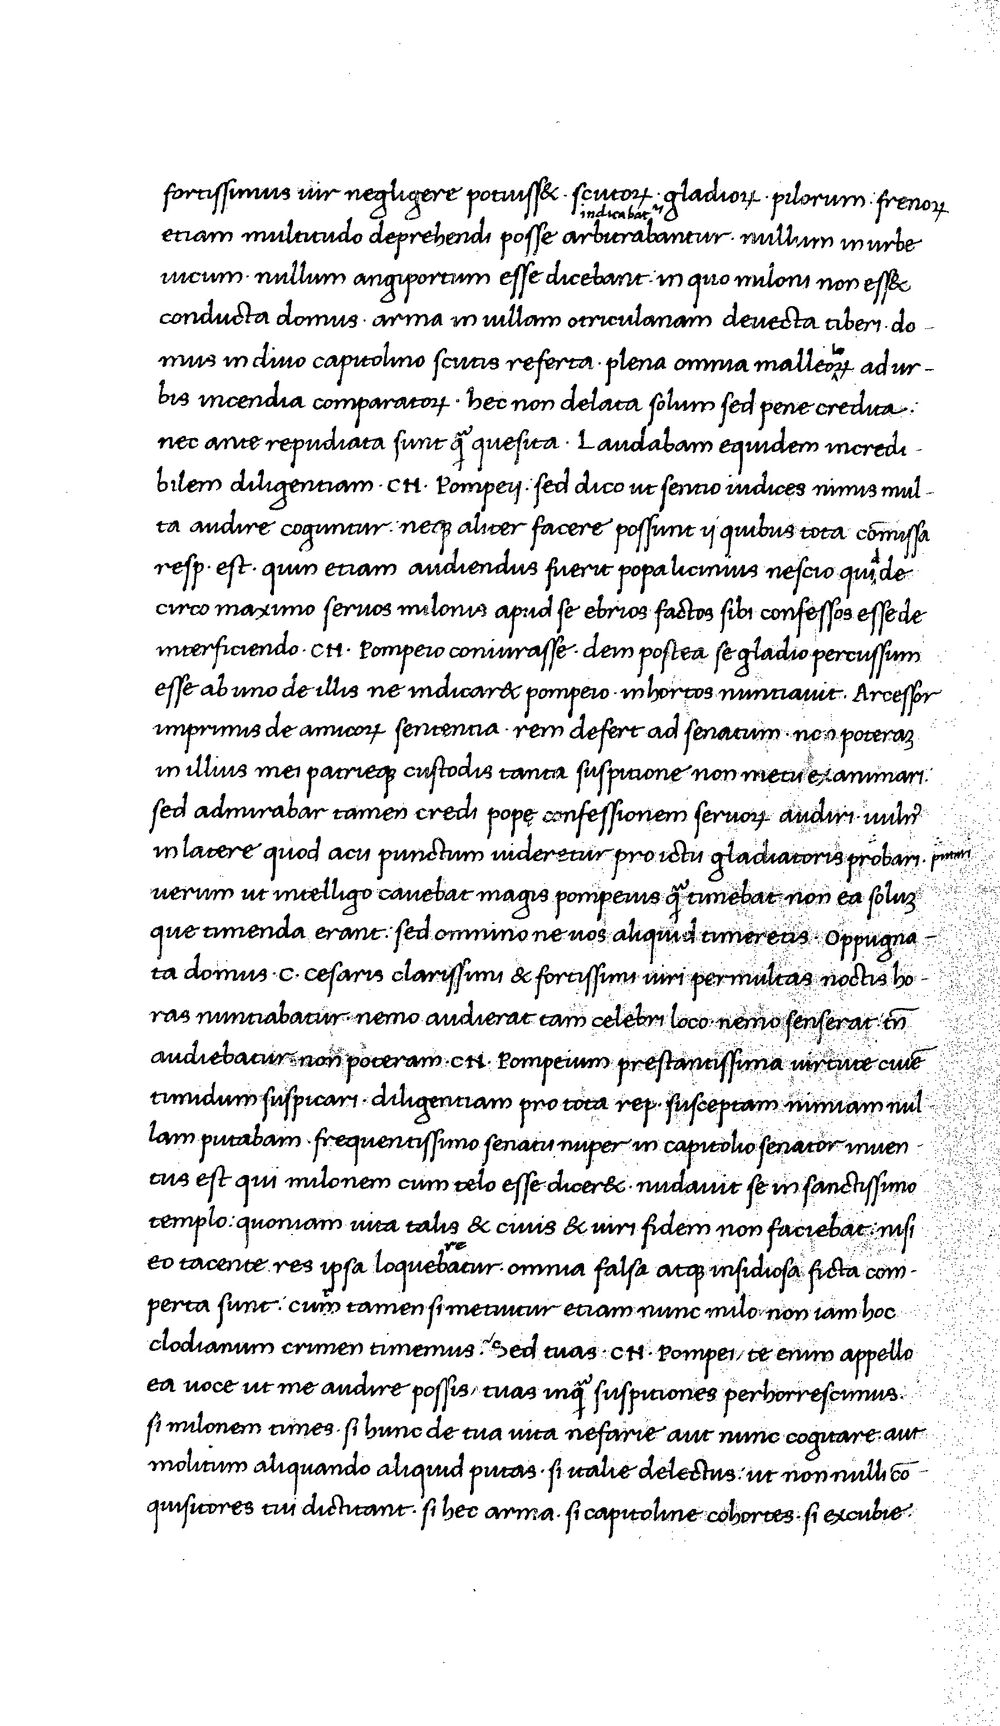 fortissimus uir negligere potuiss&. scutoꝝ. gladioꝝ. pilorum. frenoꝝ
indicabat̃
etiam multitudo deprehendi posse arbitrabantur. nullum in urbe
uicum. nullum angiportum esse dicebant: in quo miloni non ess&
conducta domus. arma in uillam otriculanam deuecta tiberi. do-
mus in diuo capitolino scutis referta. plena omnia malleoloꝝ ad ur-
bis incendia comparatoꝝ. hec non delata solum sed pene credita:
nec ante repudiata sunt q̃ʒ quesita. Laudabam equidem incredi-
bilem diligentiam. CN. Pompeij. sed dico ut sentio iudices nimis mul-
ta audire coguntur. neqʒ aliter facere possunt ij quibus tota cōmissa
resp. est. quin etiam audiendus fuerit popa licinius nescio quidde
circo maximo seruos milonis apud se ebrios factos sibi confessos esse de
interficiendo. CN. Pompeio coniurasse. dein postea se gladio percussum
esse ab uno de illis ne indicar& pompeio. in hortos nuntiauit. Arcessor
imprimis de amicoꝝ sententia. rem defert ad senatum. non poteraʒ
in illius mei patrieqʒ custodis tanta suspitione non metu exanimari.
sed admirabar tamen credi popę confessionem seruoꝝ audiri. uuln᷑
in latere quod acu punctum uideretur pro ictu gladiatoris probari. putari
uerum ut intelligo cauebat magis pompeius q̃ʒ timebat non ea soluʒ
que timenda erant: sed omnino ne uos aliquid timeretis. Oppugna-
ta domus. C. cesaris clarissimi & fortissimi uiri permultas noctis ho-
ras nuntiabatur. nemo audierat tam celebri loco. nemo senserat. tn̄
audiebatur. non poteram. CN. Pompeium prestantissima uirtute ciuē
timidum suspicari. diligentiam pro tota rep. susceptam nimiam nul-
lam putabam. frequentissimo senatu nuper in capitolio senator inuen-
tus est qui milonem cum telo esse dicer&. nudauit se in sanctissimo
templo: quoniam uita talis & ciuis & uiri fidem non faciebat: nisi
eo tacente res ipsa loqueretur. omnia falsa atqʒ insidiosa ficta com-
perta sunt. cum tamen si metuitur etiam nunc milo non iam hoc
clodianum crimen timemus. Sed tuas. CN. Pompei, te enim appello
ea uoce ut me audire possis, tuas inq̃ʒ suspitiones perhorrescimus.
si milonem times. si hunc de tua uita nefarie aut nunc cogitare. aut
molitum aliquando aliquid putas. si italie delectus: ut non nulli cō-
quisitores tui dictitant. si hec arma. si capitoline cohortes. si excubie.